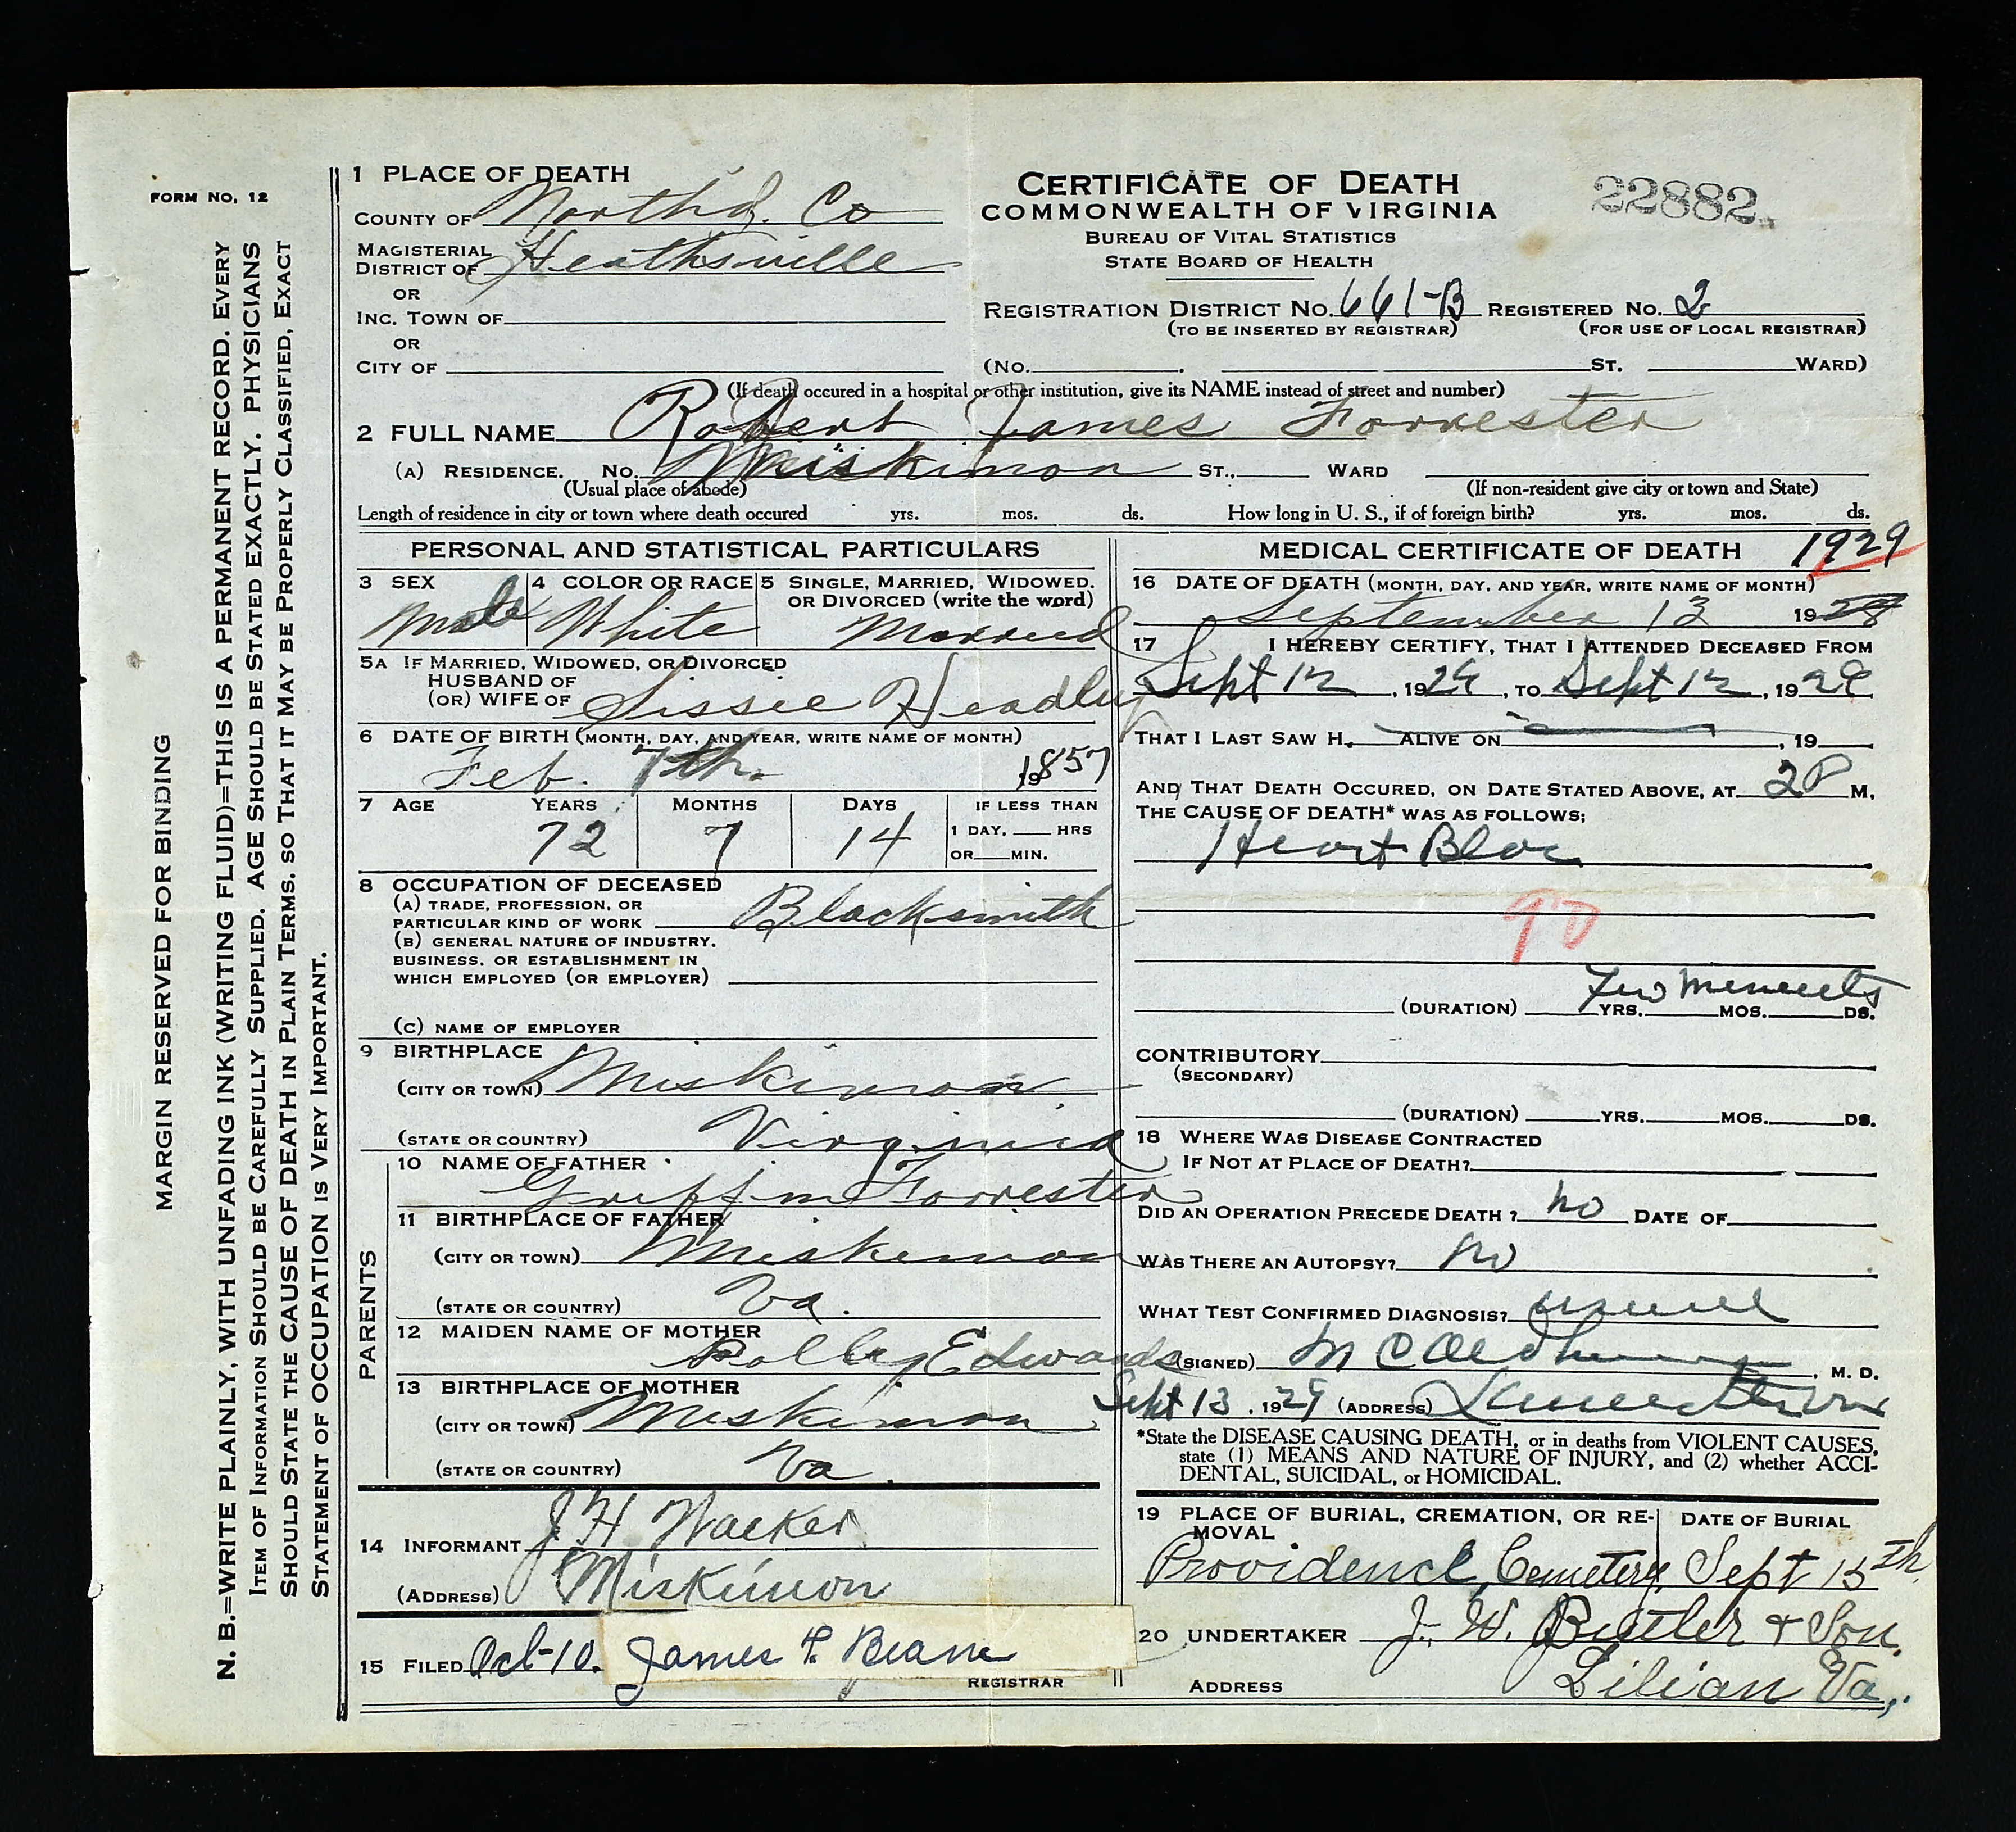 FORM NO. 12
MARGIN RESERVED FOR BINDING
N. B.=WRITE PLAINLY, WITH UNFADING INK (WRITING FLUID)=THIS IS A PERMANENT RECORD. EVERY
ITEM OF INFORMATION SHOULD BE CAREFULLY SUPPLIED. AGE SHOULD BE STATED EXACTLY. PHYSICIANS
SHOULD STATE THE CAUSE OF DEATH IN PLAIN TERMS. SO THAT IT MAY BE PROPERLY CLASSIFIED. EXACT
STATEMENT OF OCCUPATION IS VERY IMPORTANT.
1 PLACE OF DEATH
COUNTY OF North'd. Co
MAGISTERIAL
DISTRICT OF Heathsville
OR
INC. TOWN OF
OR
CITY OF
CERTIFICATE OF DEATH
COMMONWEALTH OF VIRGINIA
BUREAU OF VITAL STATISTICS
STATE BOARD OF HEALTH
22882
REGISTRATION DISTRICT NO. 661-B REGISTERED NO. 2
(TO BE INSERTED BY REGISTRAR) (FOR USE OF LOCAL REGISTRAR)
(NO. ST. WARD)
(If death occured in a hospital or other institution, give its NAME instead of street and number)
2 FULL NAME Robert James Forrester
(A) RESIDENCE. NO. Miskimon ST., WARD
(Usual place of abode) (If non-resident give city or town and State)
Length of residence in city or town where death occured yrs. mos. ds. How long in U. S., if of foreign birth? yrs. mos. ds.
PERSONAL AND STATISTICAL PARTICULARS
3 SEX 4 COLOR OR RACE 5 SINGLE, MARRIED, WIDOWED,
OR DIVORCED (write the word)
Male White Married
5A IF MARRIED, WIDOWED, OR DIVORCED
HUSBAND OF
(OR) WIFE OF Sissie Headley
6 DATE OF BIRTH (MONTH, DAY, AND YEAR, WRITE NAME OF MONTH)
Feb. 7th. 1857
7 AGE YEARS MONTHS DAYS IF LESS THAN
72 7 14 1 DAY, HRS
OR MIN.
8 OCCUPATION OF DECEASED
(A) TRADE, PROFESSION, OR
PARTICULAR KIND OF WORK Blacksmith
(B) GENERAL NATURE OF INDUSTRY.
BUSINESS, OR ESTABLISHMENT IN
WHICH EMPLOYED (OR EMPLOYER)
(C) NAME OF EMPLOYER
9 BIRTHPLACE
(CITY OR TOWN) Miskimon
(STATE OR COUNTRY) Virginia
PARENTS
10 NAME OF FATHER
Griffin Forrester
11 BIRTHPLACE OF FATHER
(CITY OR TOWN) Miskimon
(STATE OR COUNTRY) Va.
12 MAIDEN NAME OF MOTHER
Polley Edwards
13 BIRTHPLACE OF MOTHER
(CITY OR TOWN) Miskimon
(STATE OR COUNTRY) Va.
14 INFORMANT J H Walker
(ADDRESS) Miskimon
15 FILED Oct-10. James F. Beane
REGISTRAR
MEDICAL CERTIFICATE OF DEATH 1929
16 DATE OF DEATH (MONTH, DAY, AND YEAR, WRITE NAME OF MONTH)
September 13 19
17 I HEREBY CERTIFY, THAT I ATTENDED DECEASED FROM
Sept 12, 1929, TO Sept 12, 1929
THAT I LAST SAW H ALIVE ON , 19
AND THAT DEATH OCCURED, ON DATE STATED ABOVE, AT 2P M.
THE CAUSE OF DEATH* WAS AS FOLLOWS:
Heart Bloc
90
Few Menuets
(DURATION) YRS. MOS. DS.
CONTRIBUTORY
(SECONDARY)
(DURATION) YRS. MOS. DS.
18 WHERE WAS DISEASE CONTRACTED
IF NOT AT PLACE OF DEATH?
DID AN OPERATION PRECEDE DEATH ? no DATE OF
WAS THERE AN AUTOPSY? no
WHAT TEST CONFIRMED DIAGNOSIS? usual
(SIGNED) M C , M. D.
Sept 13, 1929 (ADDRESS)
*State the DISEASE CAUSING DEATH, or in deaths from VIOLENT CAUSES,
state (1) MEANS AND NATURE OF INJURY, and (2) whether ACCI-
DENTAL, SUICIDAL, or HOMICIDAL.
19 PLACE OF BURIAL, CREMATION, OR RE-
MOVAL
DATE OF BURIAL
Providence Cemetery. Sept 15th.
20 UNDERTAKER J. W. Butler & Son.
ADDRESS Lilian Va.,